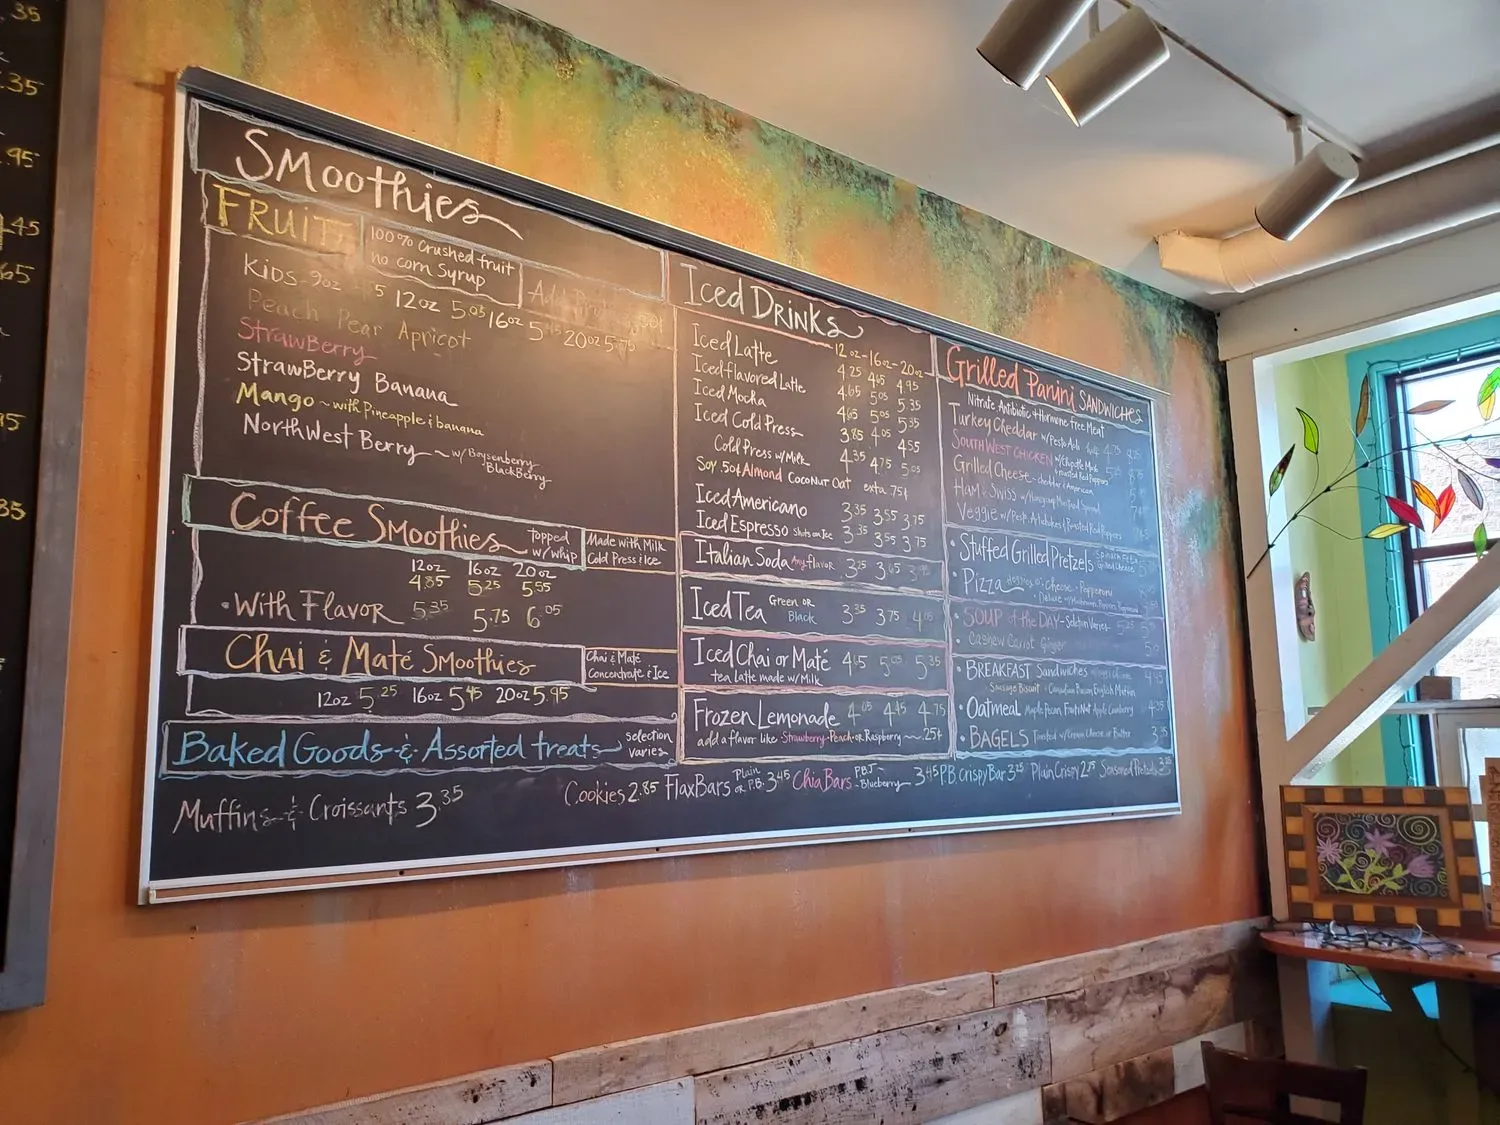 35
.35
.95
45
65
95
35
Smoothies
FRUIT
100% Crushed fruit
no corn Syrup
KIDS-9oz 12oz 5.05 16oz 5.45 20oz 5.75
Peach Pear Apricot
StrawBerry
StrawBerry Banana
Mango ~ with Pineapple & banana
NorthWest Berry ~ w/ Boysenberry
BlackBerry
Coffee Smoothies topped w/ whip
Made with Milk
Cold Press & Ice
12oz 16oz 20oz
4.85 5.25 5.55
• With Flavor 5.35 5.75 6.05
Chai & Maté Smoothies
Chai & Maté
Concentrate & Ice
12oz 5.25 16oz 5.45 20oz 5.95
Baked Goods & Assorted treats selection varies
Muffins & Croissants 3.35
Cookies 2.85 FlaxBars Plain or P.B. 3.45 ChiaBars PB.J - Blueberry 3.45 PB CrispyBar 3.25 Plain Crispy 2.75
Iced Drinks
12oz-16oz-20oz
Iced Latte 4.25 4.65 4.95
Iced flavored Latte 4.65 5.05 5.35
Iced Mocha 4.65 5.05 5.35
Iced Cold Press 3.85 4.05 4.55
Cold Press w/ Milk 4.35 4.75 5.05
Soy .50¢ Almond Coconut Oat extra 75¢
Iced Americano 3.35 3.55 3.75
Iced Espresso shots on Ice 3.35 3.55 3.75
Italian Soda Any flavor 3.25 3.65
Iced Tea Green or Black 3.35 3.75 4.05
Iced Chai or Maté 4.65 5.05 5.35
tea Latte made w/ Milk
Frozen Lemonade 4.05 4.45 4.75
add a flavor like Strawberry-Peach-or Raspberry ~ .25¢
Grilled Panini SANDWICHES
Nitrate Antibiotic & Hormone free Meat
Turkey Cheddar w/ Pesto Aioli
SOUTHWEST CHICKEN w/ Chipotle Mayo
& roasted Red Peppers
Grilled Cheese - cheddar & American
Ham & Swiss w/ Honeycup Mustard Spread
Veggie w/ Pesto, Artichokes & Roasted Red Peppers
• Stuffed Grilled Pretzels Spinach Feta
Grilled Cheese
• Pizza Cheese - Pepperoni
• Deluxe
• SOUP of the DAY - Selection Varies
• Cashew Carrot Ginger
• BREAKFAST Sandwiches
Sausage Biscuit • Canadian Bacon English Muffin
• Oatmeal Maple Pecan, Fruit & Nut, Apple Cranberry
• BAGELS Toasted w/ Cream Cheese or Butter